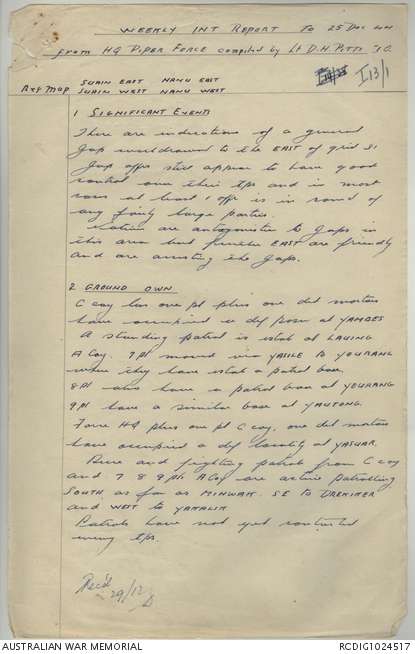 WEEKLY INT REPORT TO 25 DEC 44
from HQ PIPER FORCE compiled by Lt D.H. PITTS I.O.
I13/1
Ref Map SUAIN EAST NANU EAST
SUAIN WEST NANU WEST
1 SIGNIFICANT EVENTS
There are indications of a general
Jap withdrawal to the EAST of grid 31
Jap offrs still appear to have good
control over their tps and in most
cases at least 1 offr is in comd of
any fairly large parties.
Natives are antagonistic to Japs in
this area but further EAST are friendly
and are assisting the Japs.
2 GROUND OWN
C coy less one pl plus one det mortars
have occupied a def posn at YAMBES
A standing patrol is estab at LAUING
A Coy. 7 Pl moved via YASILE to YOURANG
where they have estab a patrol base.
8 Pl also have a patrol base at YEURANG
9 Pl have a similar base at YAUTONG.
Force HQ plus one pl C coy, one det mortars
have occupied a def locality at YASUAR.
Recce and fighting patrols from C coy
and 7 8 9 Pls A Coy are active patrolling
SOUTH as far as MIHWAK. SE to DREKIKER
and WEST to YAKALIK
Patrols have not yet contacted
enemy tps.
Rec'd
29/12
AUSTRALIAN WAR MEMORIAL RCDIG1024517